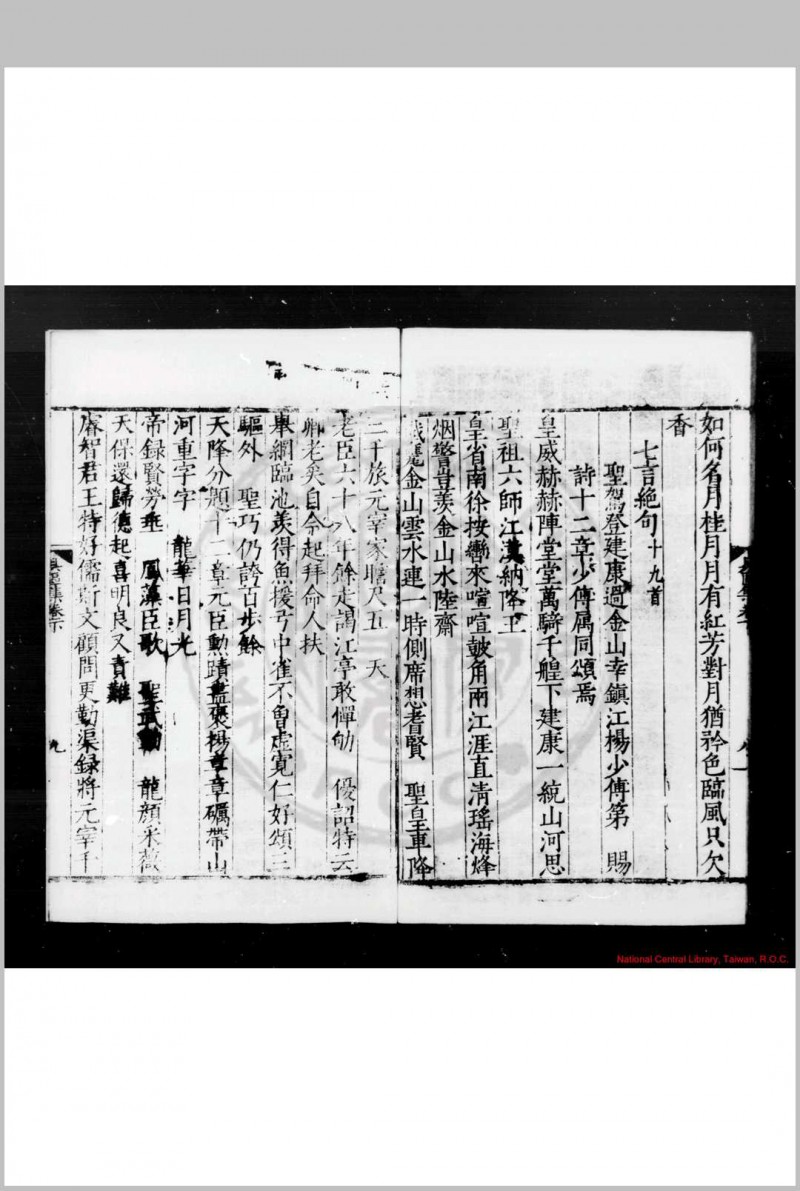 如何名月桂月月有紅芳對月猶矜色臨風只欠
香
七言絶句十九首
聖駕登建康過金山幸鎮江楊少傅第　賜
詩十二章少傅属同頌焉
皇威赫赫陣堂堂萬騎千艘下建康一統山河思
聖祖六師江漢納降王
皇省南徐按轡來喧喧鼓角兩江涯直清瑶海烽
烟警豈羡金山水陸齋
巍金山雲水連一時側席想耆賢　聖皇重降
三千旅元宰家瞻尺五　天
老臣六十八年餘走謁江亭敢憚劬　優詔特云
卿老矣自今起拜命人扶
舉網臨池羡得魚援弓中雀不曾虚寛仁好頌三
驅外　聖巧仍誇百步餘
天降分題十二章元臣勲蹟盡褒揚章章礪帶山
河重字字　龍華日月光
帝録賢勞垂　鳳藻臣歌　聖武　龍顔采薇
天保還歸德起喜明良又責難
睿智君王特好儒斯文顧問更勤渠録將元宰手
集卷下
九
National Central Library, Taiwan, R.O.C.